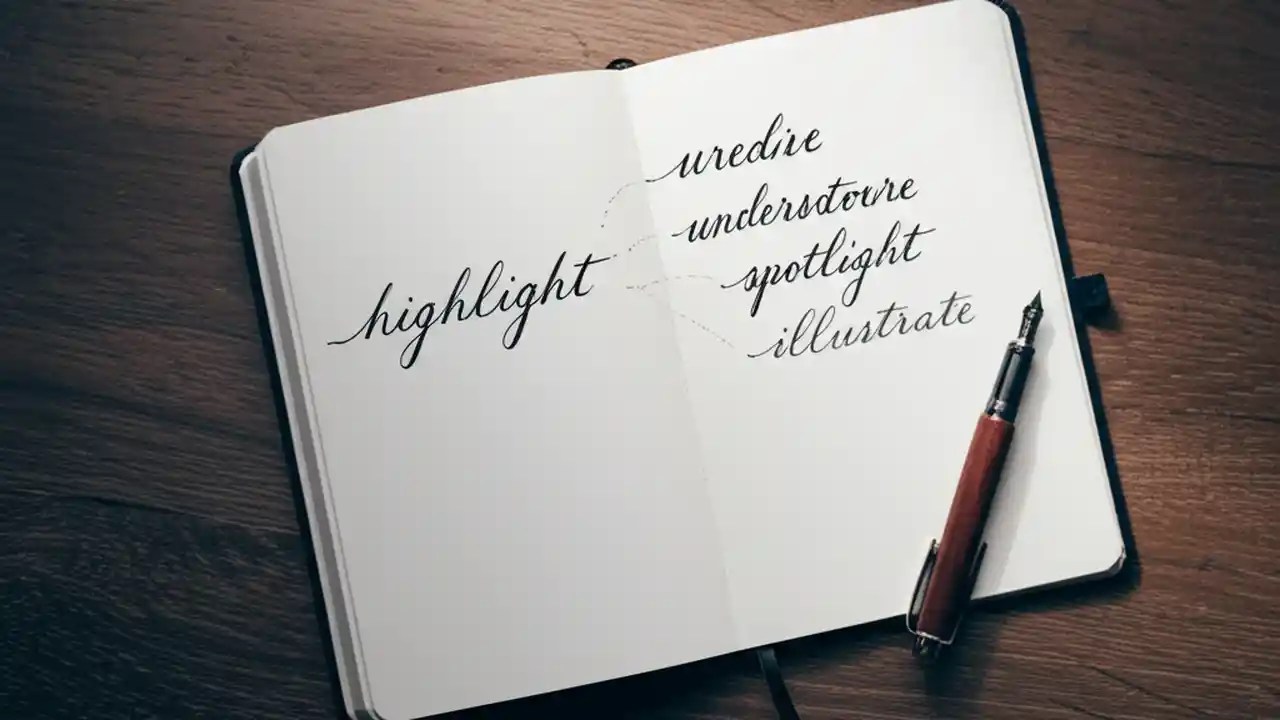 highlight
uredise
understovre
spotlight
illustrate